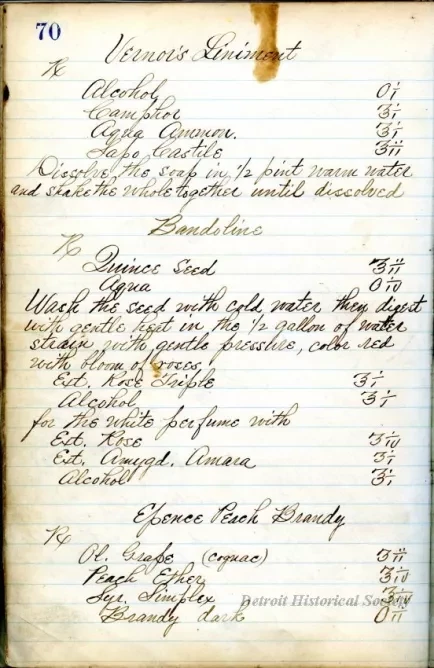 70
Vernor's Liniment
℞
Alcohol O i
Camphor ℥ i
Aqua Ammon. ℥ i
Sapo Castile ℥ ii
Dissolve the soap in 1/2 pint warm water
and shake the whole together until dissolved
Bandoline
℞
Quince Seed ℥ ii
Aqua O iv
Wash the seed with cold water then digest
with gentle heat in the 1/2 gallon of water
strain with gentle pressure, color red
with bloom of roses,
Ext. Rose Triple ℥ i
Alcohol ℥ i
for the white perfume with
Ext. Rose ℥ iv
Ext. Amygd. Amara ℥ i
Alcohol ℥ i
Essence Peach Brandy
℞
Ol. Grape (cognac) ℥ ii
Peach Ether ℥ iv
Syr. Simplex
Brandy dark O ii
Detroit Historical Society